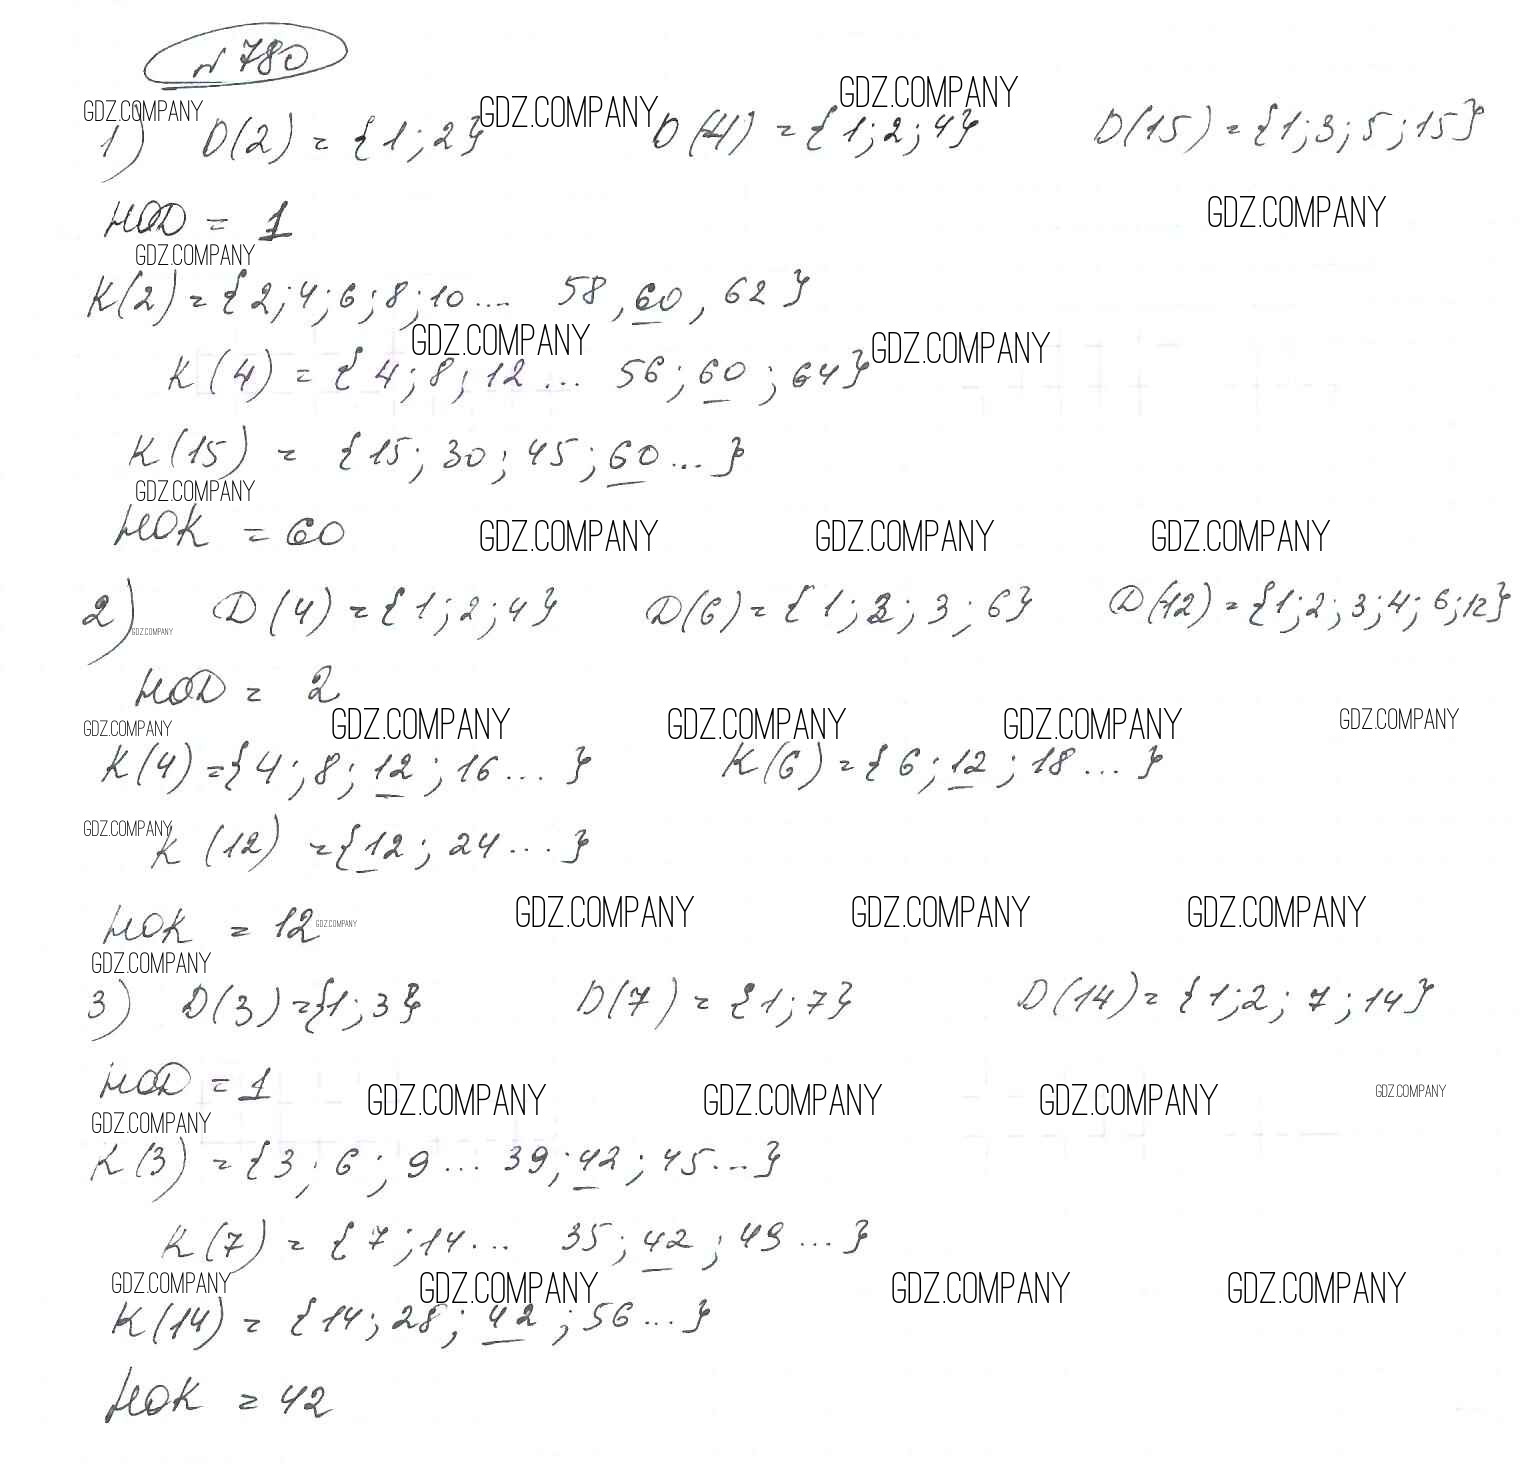 №780
GDZ.COMPANY GDZ.COMPANY GDZ.COMPANY
1) D(2) = {1; 2} D(4) = {1; 2; 4} D(15) = {1; 3; 5; 15}
НОД = 1 GDZ.COMPANY
GDZ.COMPANY
K(2) = {2; 4; 6; 8; 10.... 58, 60, 62}
GDZ.COMPANY GDZ.COMPANY
K(4) = {4; 8; 12... 56; 60; 64}
K(15) = {15; 30; 45; 60...}
GDZ.COMPANY
НОК = 60 GDZ.COMPANY GDZ.COMPANY GDZ.COMPANY
2) D(4) = {1; 2; 4} D(6) = {1; 2; 3; 6} D(12) = {1; 2; 3; 4; 6; 12}
GDZ.COMPANY
НОД = 2
GDZ.COMPANY GDZ.COMPANY GDZ.COMPANY GDZ.COMPANY GDZ.COMPANY
K(4) = {4; 8; 12; 16...} K(6) = {6; 12; 18...}
GDZ.COMPANY
K(12) = {12; 24...}
НОК = 12 GDZ.COMPANY GDZ.COMPANY GDZ.COMPANY GDZ.COMPANY
GDZ.COMPANY
3) D(3) = {1; 3} D(7) = {1; 7} D(14) = {1; 2; 7; 14}
НОД = 1 GDZ.COMPANY GDZ.COMPANY GDZ.COMPANY GDZ.COMPANY
GDZ.COMPANY
K(3) = {3; 6; 9... 39; 42; 45...}
K(7) = {7; 14... 35; 42; 49...}
GDZ.COMPANY GDZ.COMPANY GDZ.COMPANY GDZ.COMPANY
K(14) = {14; 28; 42; 56...}
НОК = 42